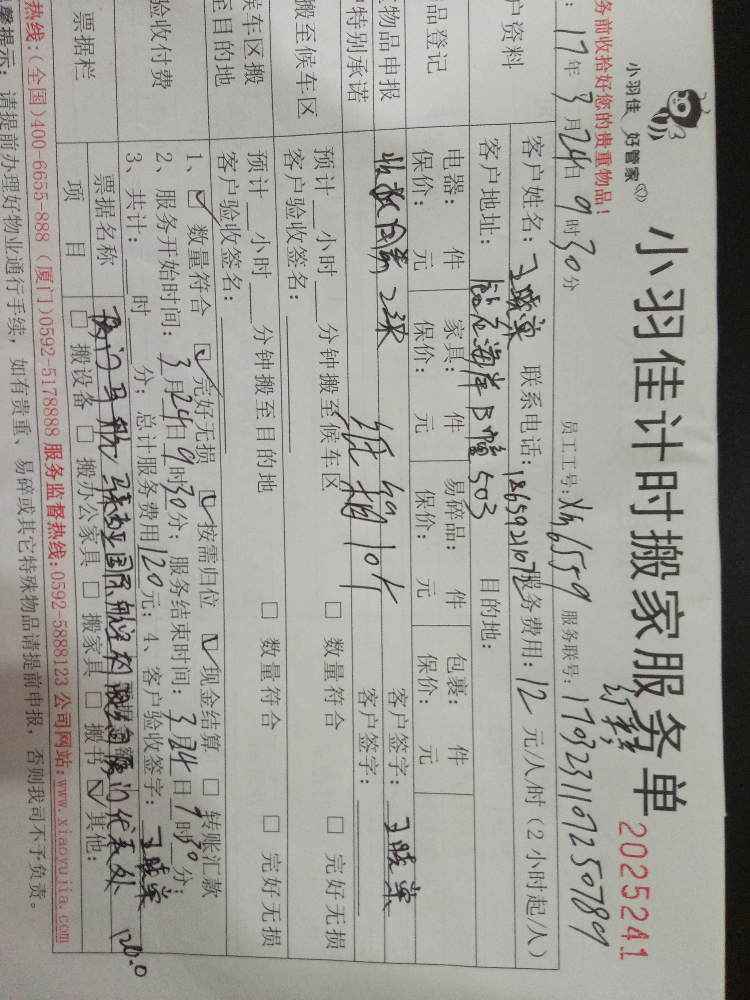 小羽佳 好管家
小羽佳计时搬家服务单
2025241
务前收拾好您的贵重物品！
17年3月24日9时30分 员工工号：Xm6559 服务联号：1703231107250789
户资料
客户姓名： 联系电话：18659210 服务费用：12 元/人/时（2小时起/人）
客户地址： 503 目的地：
品登记
电器： 件 家具： 件 易碎品： 件 包裹： 件
保价： 元 保价： 元 保价： 元 保价： 元
物品申报
客户签字：
特别承诺
纸箱10个 客户签字：
搬至候车区
预计__小时__分钟搬至候车区 □ 数量符合 □ 完好无损
客户验收签名：
候车区搬
至目的地
预计__小时__分钟搬至目的地 □ 数量符合 □ 完好无损
客户验收签名：
验收付费
1、☑ 数量符合 ☑ 完好无损 ☑ 按需归位 ☑ 现金结算 □ 转账汇款
2、服务开始时间：3月24日9时30分；服务结束时间：3月24日9时30分；
3、共计： 时 分；总计服务费用120元；4、客户验收签字：
票据栏
票据名称 120.0
项 目 □ 搬设备 □ 搬办公家具 □ 搬家具 □ 搬书 ☑ 其他：
热线：（全国）400-6655-888（厦门）0592-5178888 服务监督热线：0592-5888123 公司网站：www.xiaoyujia.com
提示：请提前办理好物业通行手续，如有贵重、易碎或其它特殊物品请提前申报，否则我司不予负责。